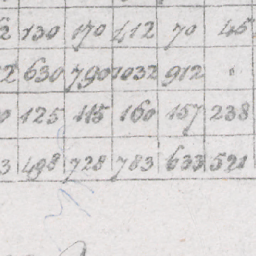 2 130 170 412 70 45
2 630 790 1032 912 0
0 125 115 160 157 238
3 498 728 783 633 521